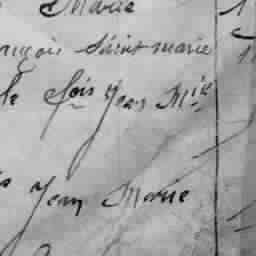 Marie
ançois Saint marie
le fois Jean Mie
Jean Marie